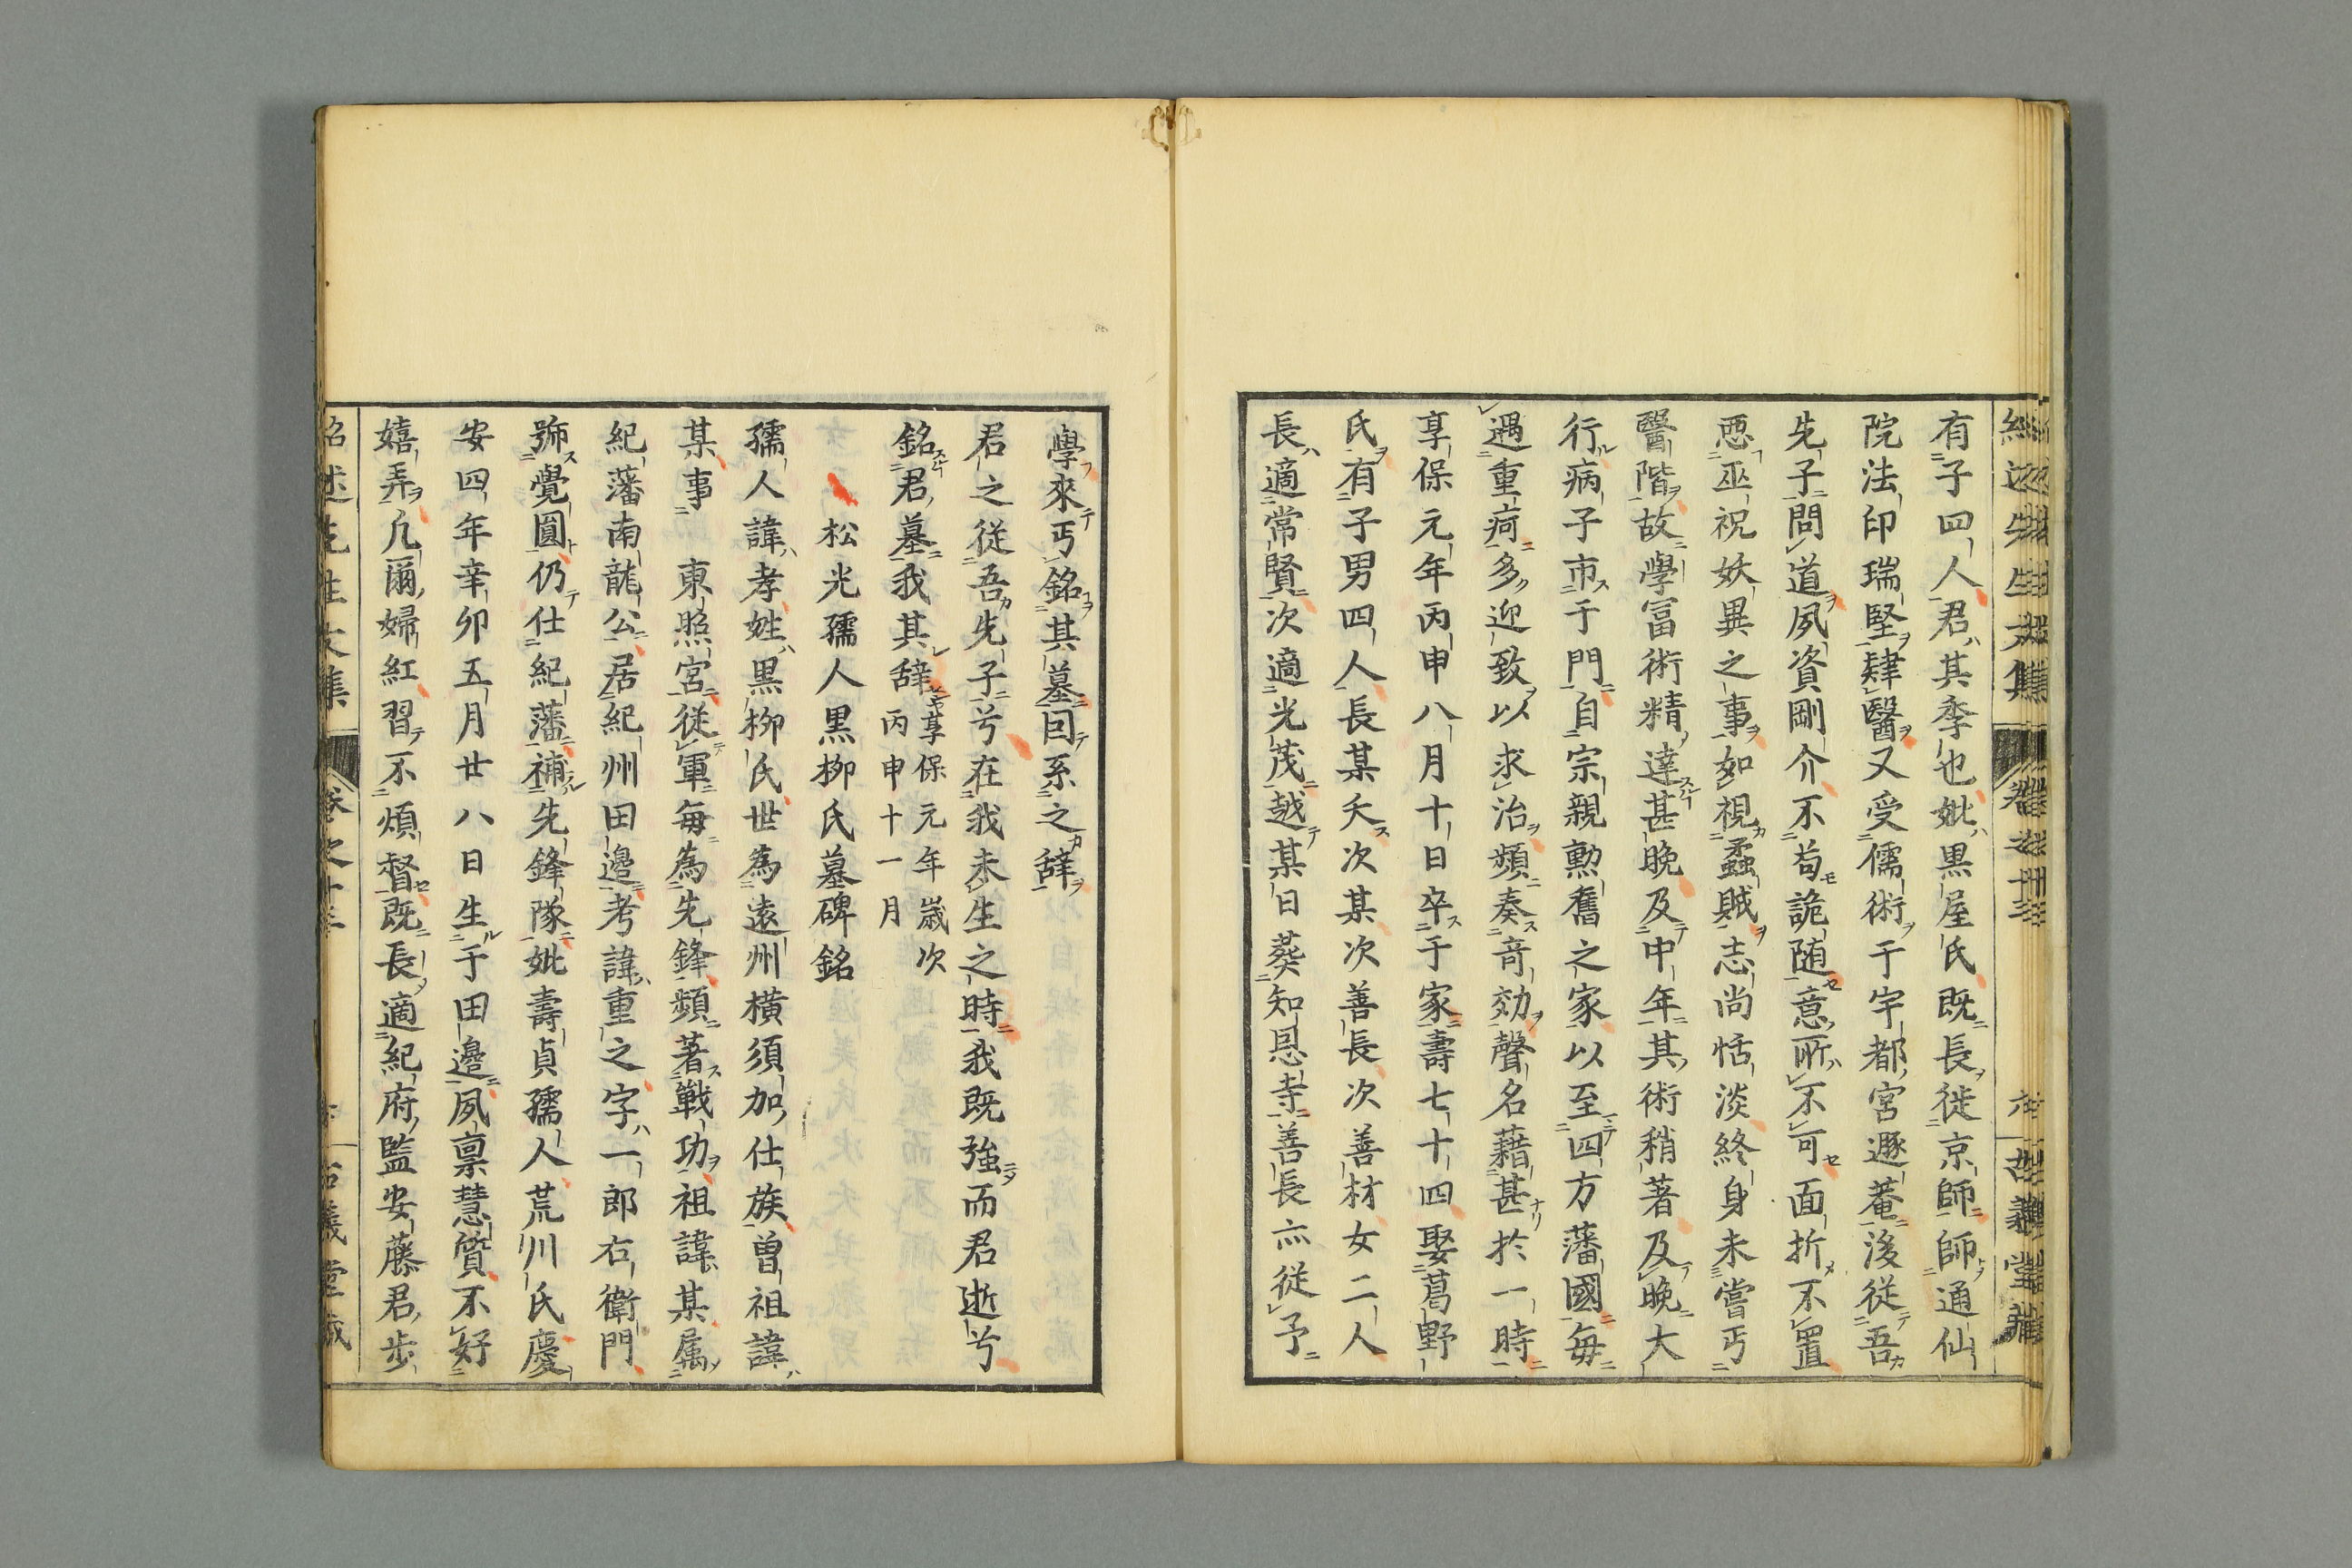 有子四人君其季也妣黒屋氏既長徙京師師通仙
院法印瑞堅肄醫又受儒術于宇都宮遯菴後従吾
先子問道夙資剛介不苟詭随意所不可面折不置
悪巫祝妖異之事如視蟊賊志尚恬淡終身未嘗丐
醫階故學冨術精達甚晩及中年其術稍著及晩大
行病子市于門自宗親勲舊之家以至四方藩國毎
遇重痾多迎致以求治頻奏竒効聲名藉甚於一時
享保元年丙申八月十日卒于家壽七十四娶葛野
氏有子男四人長某夭次某次善長次善材女二人
長適常賢次適光茂越某日葬知恩寺善長亦従予
學來丐銘其墓囙系之辭
君之従吾先子兮在我未生之時我既強而君逝兮
銘君墓我其辭享保元年歳次
丙申十一月
松光孺人黒柳氏墓碑銘
孺人諱孝姓黒柳氏世為遠州横須加仕族曽祖諱
某事　東照宮従軍毎為先鋒頻著戰功祖諱某属
紀藩南龍公居紀州田邉考諱重之字一郎右衛門
號覺圓仍仕紀藩補先鋒隊妣壽貞孺人荒川氏慶
安四年辛卯五月廿八日生于田邉夙稟慧質不好
嬉弄凢爾婦紅習不煩督既長適紀府監安藤君歩
紹述先生文集　卷之十三　古義堂藏